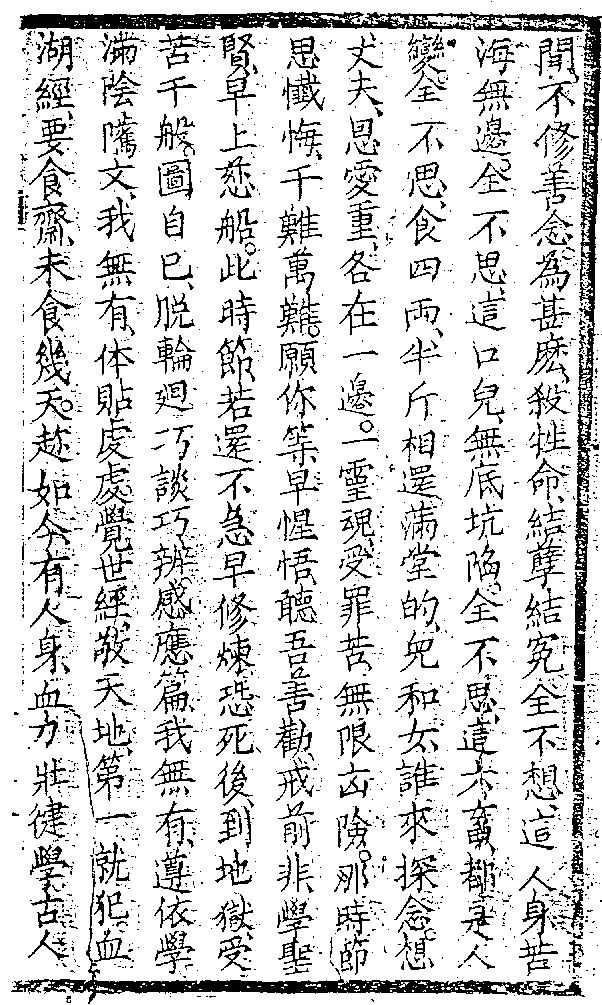 間、不修善念、為甚麽、殺牲命、結孽結寃、全不想、這人身苦
海無邊。全不思、這口兒、無底坑陷。全不思、這六畜、都是人
變。全不思、食四兩、半斤相還。滿堂的、兒和女、誰來探念。想
丈夫、恩愛重、各在一邊。一靈魂、受罪苦、無限凶險。那時節
思懺悔、千難萬難。願你等、早惺悟、聽吾善勸、戒前非、學聖
賢、早上慈船。此時節、若還不急早修煉、恐死後、到地獄、受
苦千般。圖自已、脱輪廻、巧談巧辨。感應篇、我無有、遵依學
滿。陰隲文、我無有、体貼處處。覺世經、敬天地、第一就犯。血
湖經、要食齋、未食幾天。趂如今、有人身、血力壯健、學古人